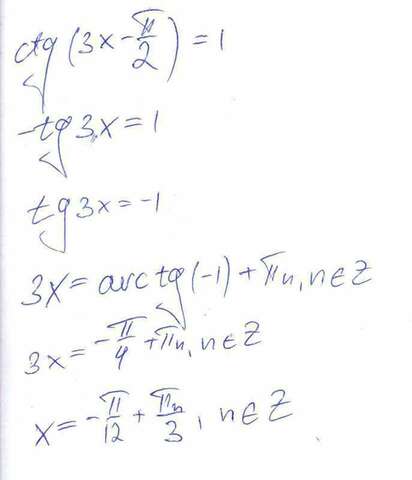 ctg(3x - π/2) = 1
-tg 3x = 1
tg 3x = -1
3x = arctg(-1) + πn, n ∈ Z
3x = -π/4 + πn, n ∈ Z
x = -π/12 + πn/3, n ∈ Z